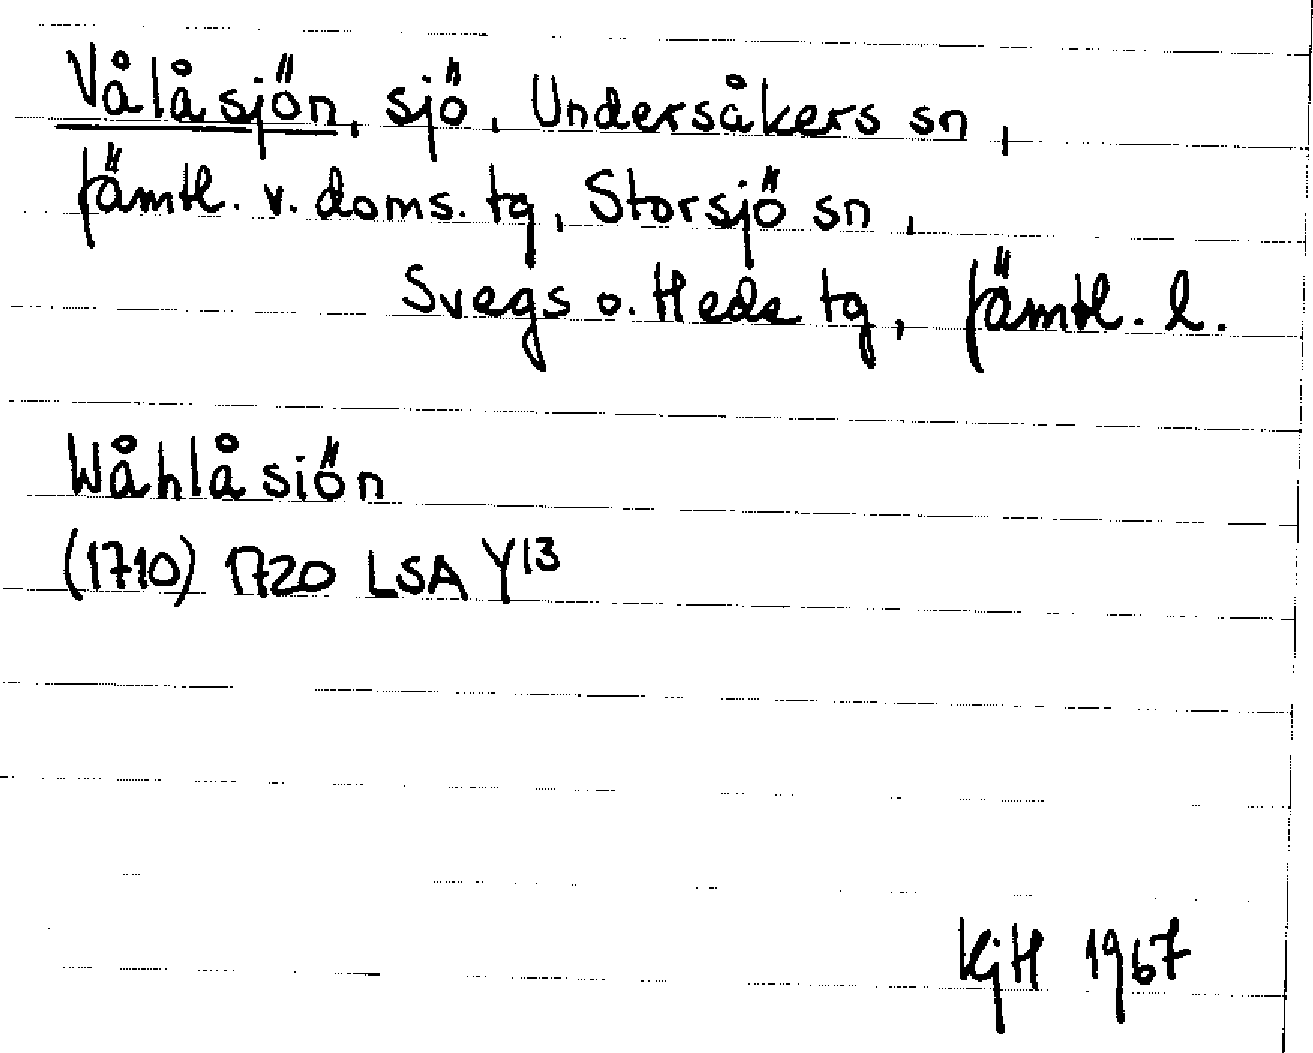 Vålåsjön, sjö, Undersåkers sn,
Jämtl. v. doms. tg, Storsjö sn,
Svegs o. Heds tg, Jämtl. l.
Wåhlåsiön
(1710) 1720 LSA Y13
KjH 1967